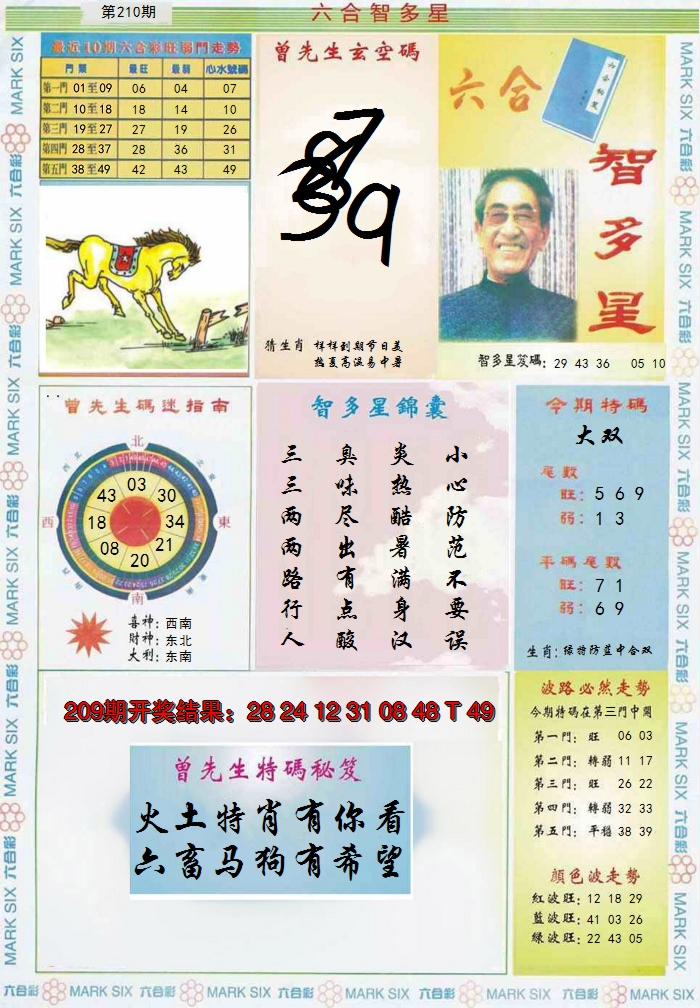 第210期
六合智多星
最近10期六合彩旺弱門走勢
門類 最旺 最弱 心水號碼
第一門 01至09 06 04 07
第二門 10至18 18 14 10
第三門 19至27 27 19 26
第四門 28至37 28 36 31
第五門 38至49 42 43 49
曾先生玄空碼
猜生肖 样样到期节日美
热夏高温易中暑
六合
六合秘笈
智多星
智多星笈碼: 29 43 36 05 10
曾先生碼迷指南
北
西
東
南
03
30
34
21
20
08
18
43
喜神: 西南
财神: 东北
大利: 东南
智多星錦囊
小心防范不要误
炎热酷暑满身汉
臭味尽出有点酸
三三两两路行人
今期特碼
大双
尾數
旺: 5 6 9
弱: 1 3
平碼尾數
旺: 7 1
弱: 6 9
生肖: 绿特防蓝中合双
209期开奖结果: 28 24 12 31 08 48 T 49
曾先生特碼秘笈
火土特肖有你看
六畜马狗有希望
波路必然走勢
今期特碼在第三門中開
第一門: 旺 06 03
第二門: 轉弱 11 17
第三門: 旺 26 22
第四門: 轉弱 32 33
第五門: 平穩 38 39
顏色波走勢
紅波旺: 12 18 29
藍波旺: 41 03 26
綠波旺: 22 43 05
MARK SIX 六合彩